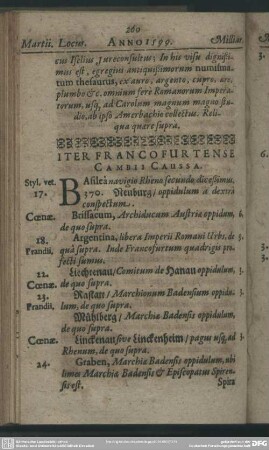 260
Martii. Locur. ANNO 1599. Milliar.
cus Iselius, Jureconsultus: In his visu digniss-
mus est, egregius antiquissimorum numisma-
tum thesaurus, ex auro, argento, cupro, ære,
plumbo &c. omnium fere Romanorum Impera-
torum, usq́; ad Carolum magnum magno stu-
dio, ab ipso Amerbachio collectus. Reli-
qua quære supra.
ITER FRANCOFURTENSE
CAMBII CAUSSA.
Styl. vet. BAsileâ navigio Rheno secundo discessimus.
17. Neuburg/ oppidulum à dextrâ
conspectum.
Cœnæ. Brissacum, Archiducum Austriæ oppidum, 6.
de quo supra.
18. Argentina, libera Imperii Romani Urbs, de 3.
Prandii, quâ supra. Inde Francofurtum quadrigis pro-
fecti sumus.
22. Liechtenau/ Comitum de Hanau oppidulum, 3.
Cœnæ. de quo supra.
23. Rastatt/ Marchionum Badensium oppidu- 3.
Prandii, lum, de quo supra.
Mühlberg/ Marchiæ Badensis oppidulum,
de quo supra.
Cœnæ. Linckenau sive Linckenheim/ pagus usq́; ad 3.
Rhenum, de quo supra.
24. Graben, Marchiæ Badensis oppidulum, ubi
limes Marchiæ Badensis & Episcopatus Spiren-
sis est.
Spira